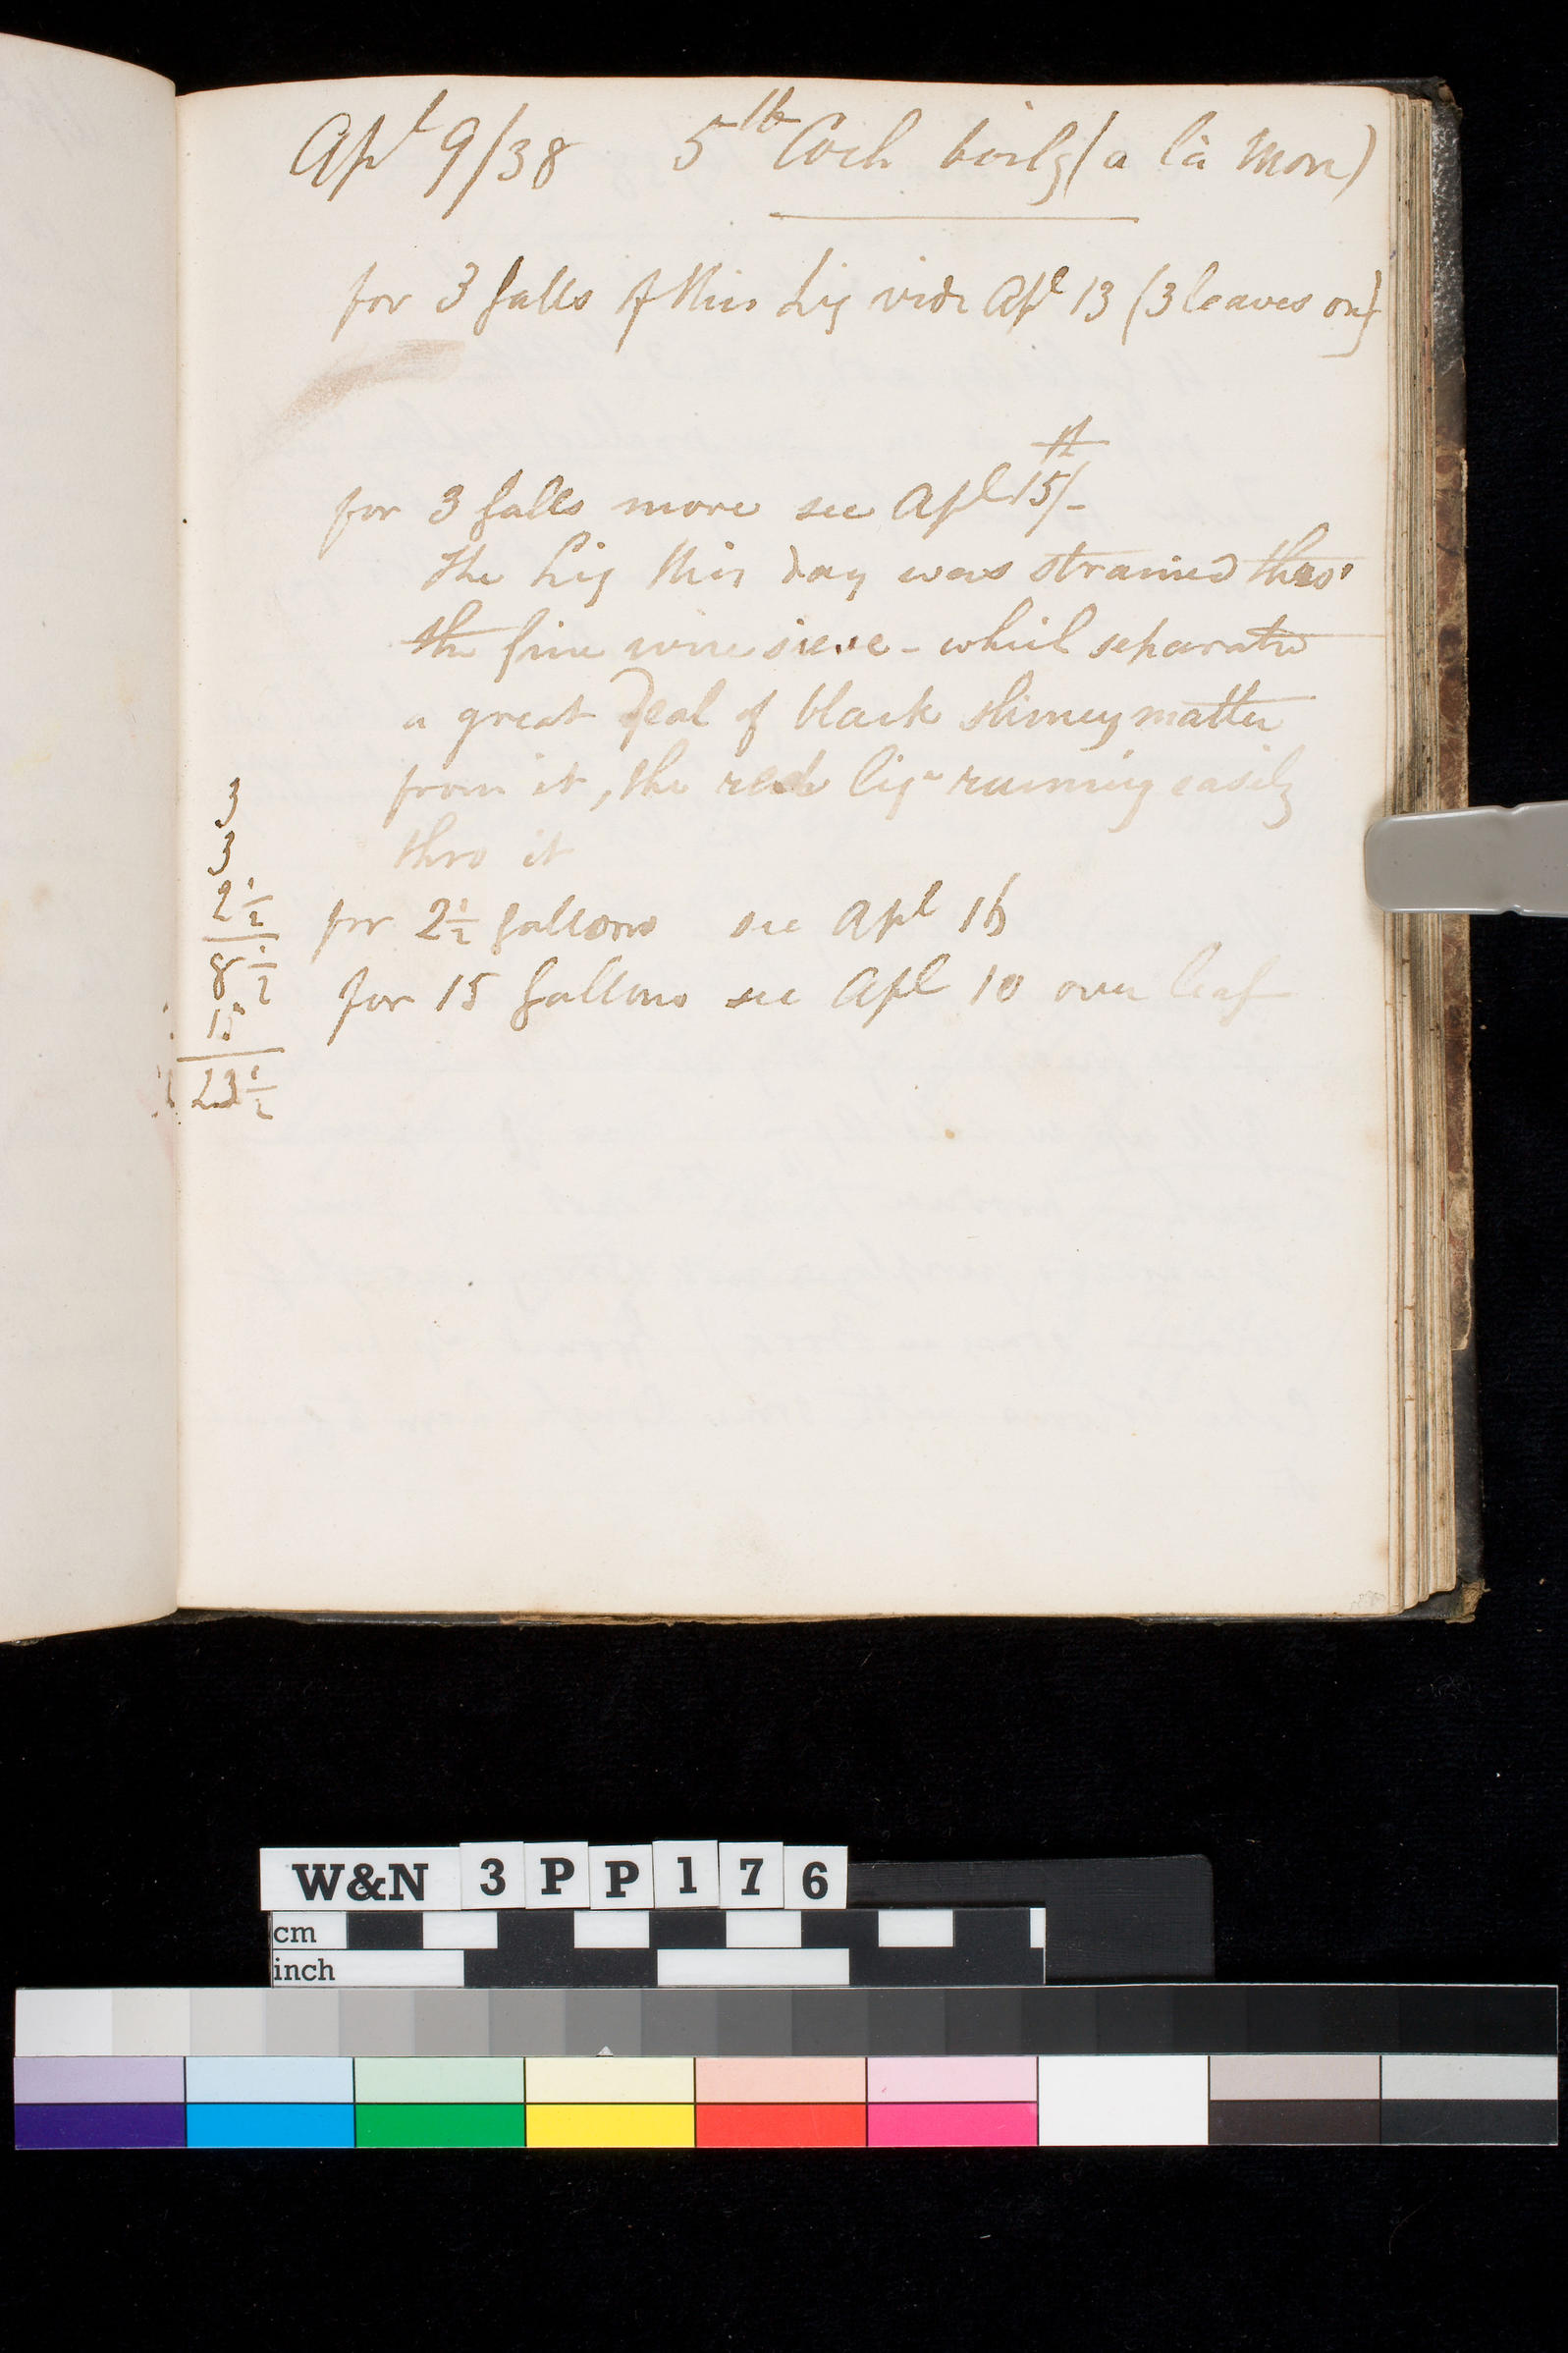 Apl 9/38 5lb Coch boilg (a la Mon)
for 3 galls of this Liq vide Apl 13 (3 leaves on)
for 3 galls more see Apl 15th/-
the Liq this day was strained thro'
the fine wire sieve - which separated
a great deal of black slimey matter
from it, the red liqr running easily
thro it
for 2 1/2 gallons see Apl 16
for 15 gallons see Apl 10 over leaf
3
3
2 1/2
8 1/2
15
23 1/2
W&N 3PP176
cm
inch